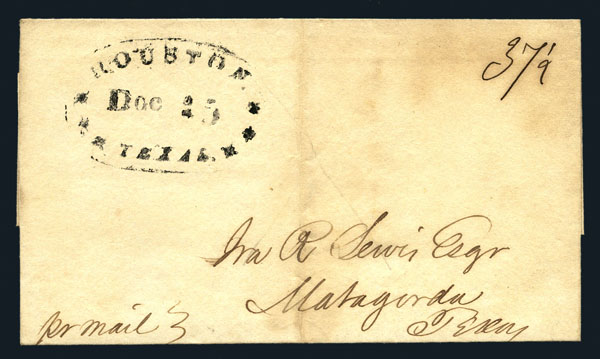 HOUSTON
Dec 25
TEXAS
37½
Ira R Lewis Esqr
Matagorda
Texas
pr mail